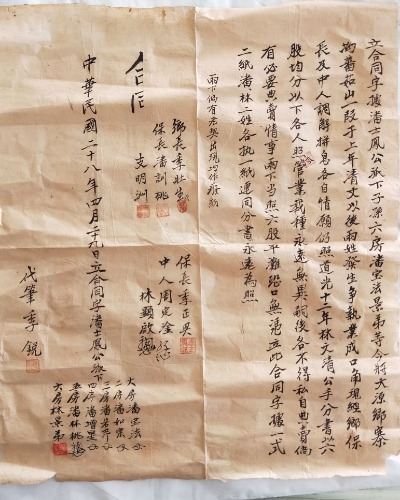 立合同字據潘士鳳公派下子孫六房潘宏法景弟等今將大源鄉寨
番茹山一段于上年清丈以後兩姓發生爭執業成口角現經鄉保
長及中人調解拼息各自情願仍照道光十一年林文清公手分書以六
股均分以下各人照管業栽種永遠無異嗣後各不得私自典賣倘
有必要典賣情事兩下當照六股平攤恐口無憑立此合同字據一式
二紙潘林二姓各執一紙連同分書永遠為照
兩下倘有老契出現均作廢紙
鄉長季
保長潘訓桃
支明洲
保長季正吳
中人周定淦
林顯啟
中華民國二十八年四月二十九日立合同字潘士鳳公派下
大房潘宏法
二房潘和
三房潘
四房潘增
五房潘林桃
六房林景弟
代筆季銳